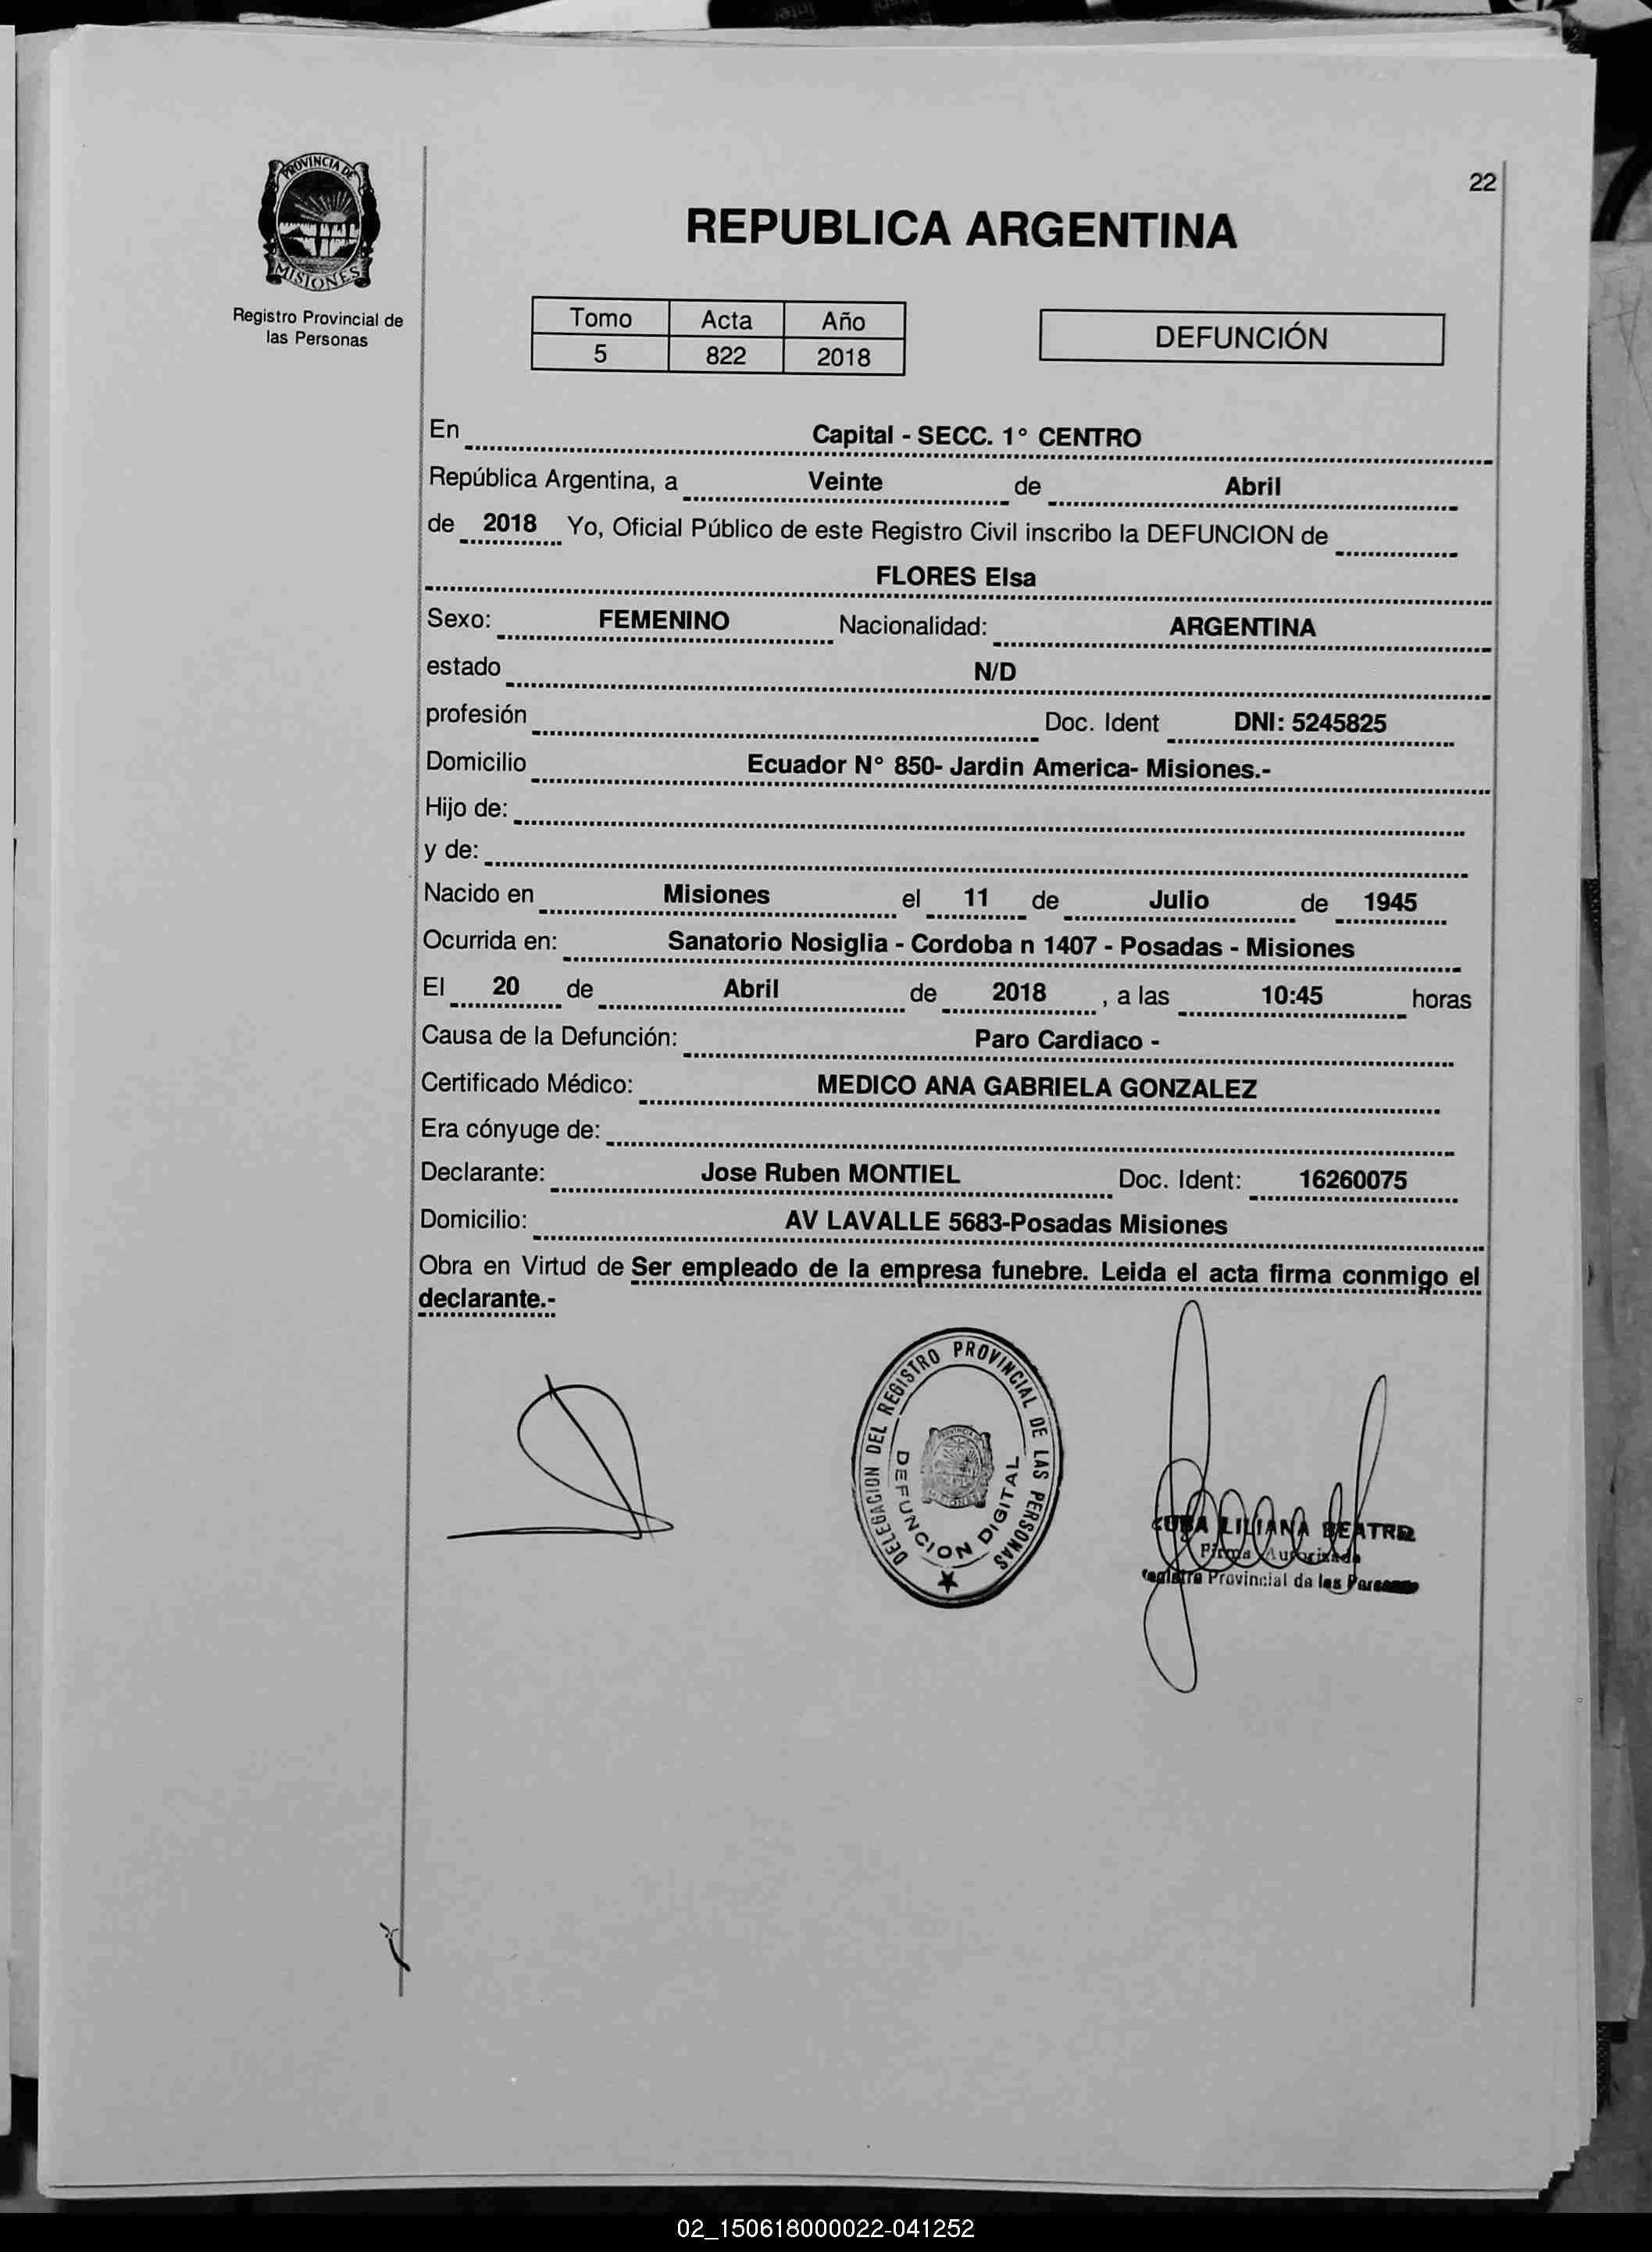 22
PROVINCIA DE
MISIONES
Registro Provincial de
las Personas
REPUBLICA ARGENTINA
Tomo Acta Año
5 822 2018
DEFUNCIÓN
En Capital - SECC. 1° CENTRO
República Argentina, a Veinte de Abril
de 2018 Yo, Oficial Público de este Registro Civil inscribo la DEFUNCION de
FLORES Elsa
Sexo: FEMENINO Nacionalidad: ARGENTINA
estado N/D
profesión Doc. Ident DNI: 5245825
Domicilio Ecuador N° 850- Jardin America- Misiones.-
Hijo de:
y de:
Nacido en Misiones el 11 de Julio de 1945
Ocurrida en: Sanatorio Nosiglia - Cordoba n 1407 - Posadas - Misiones
El 20 de Abril de 2018 , a las 10:45 horas
Causa de la Defunción: Paro Cardiaco -
Certificado Médico: MEDICO ANA GABRIELA GONZALEZ
Era cónyuge de:
Declarante: Jose Ruben MONTIEL Doc. Ident: 16260075
Domicilio: AV LAVALLE 5683-Posadas Misiones
Obra en Virtud de Ser empleado de la empresa funebre. Leida el acta firma conmigo el
declarante.-
DELEGACION DEL REGISTRO PROVINCIAL DE LAS PERSONAS
DEFUNCION DIGITAL
LILIANA BEATRIZ
Firma Autorizada
Provincial de las Personas
02_150618000022-041252